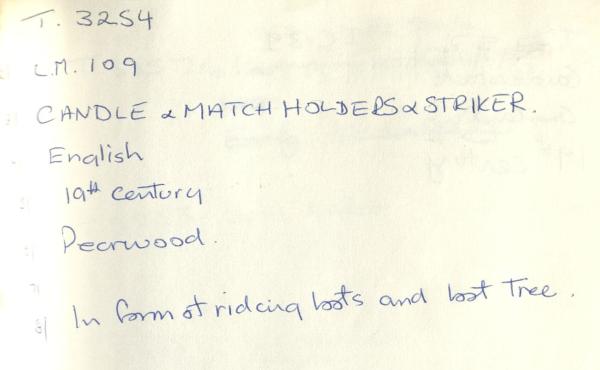 T. 3254
L.M. 109
CANDLE & MATCH HOLDERS & STRIKER.
English
19th century
Pearwood.
In form of riding boots and boot Tree.